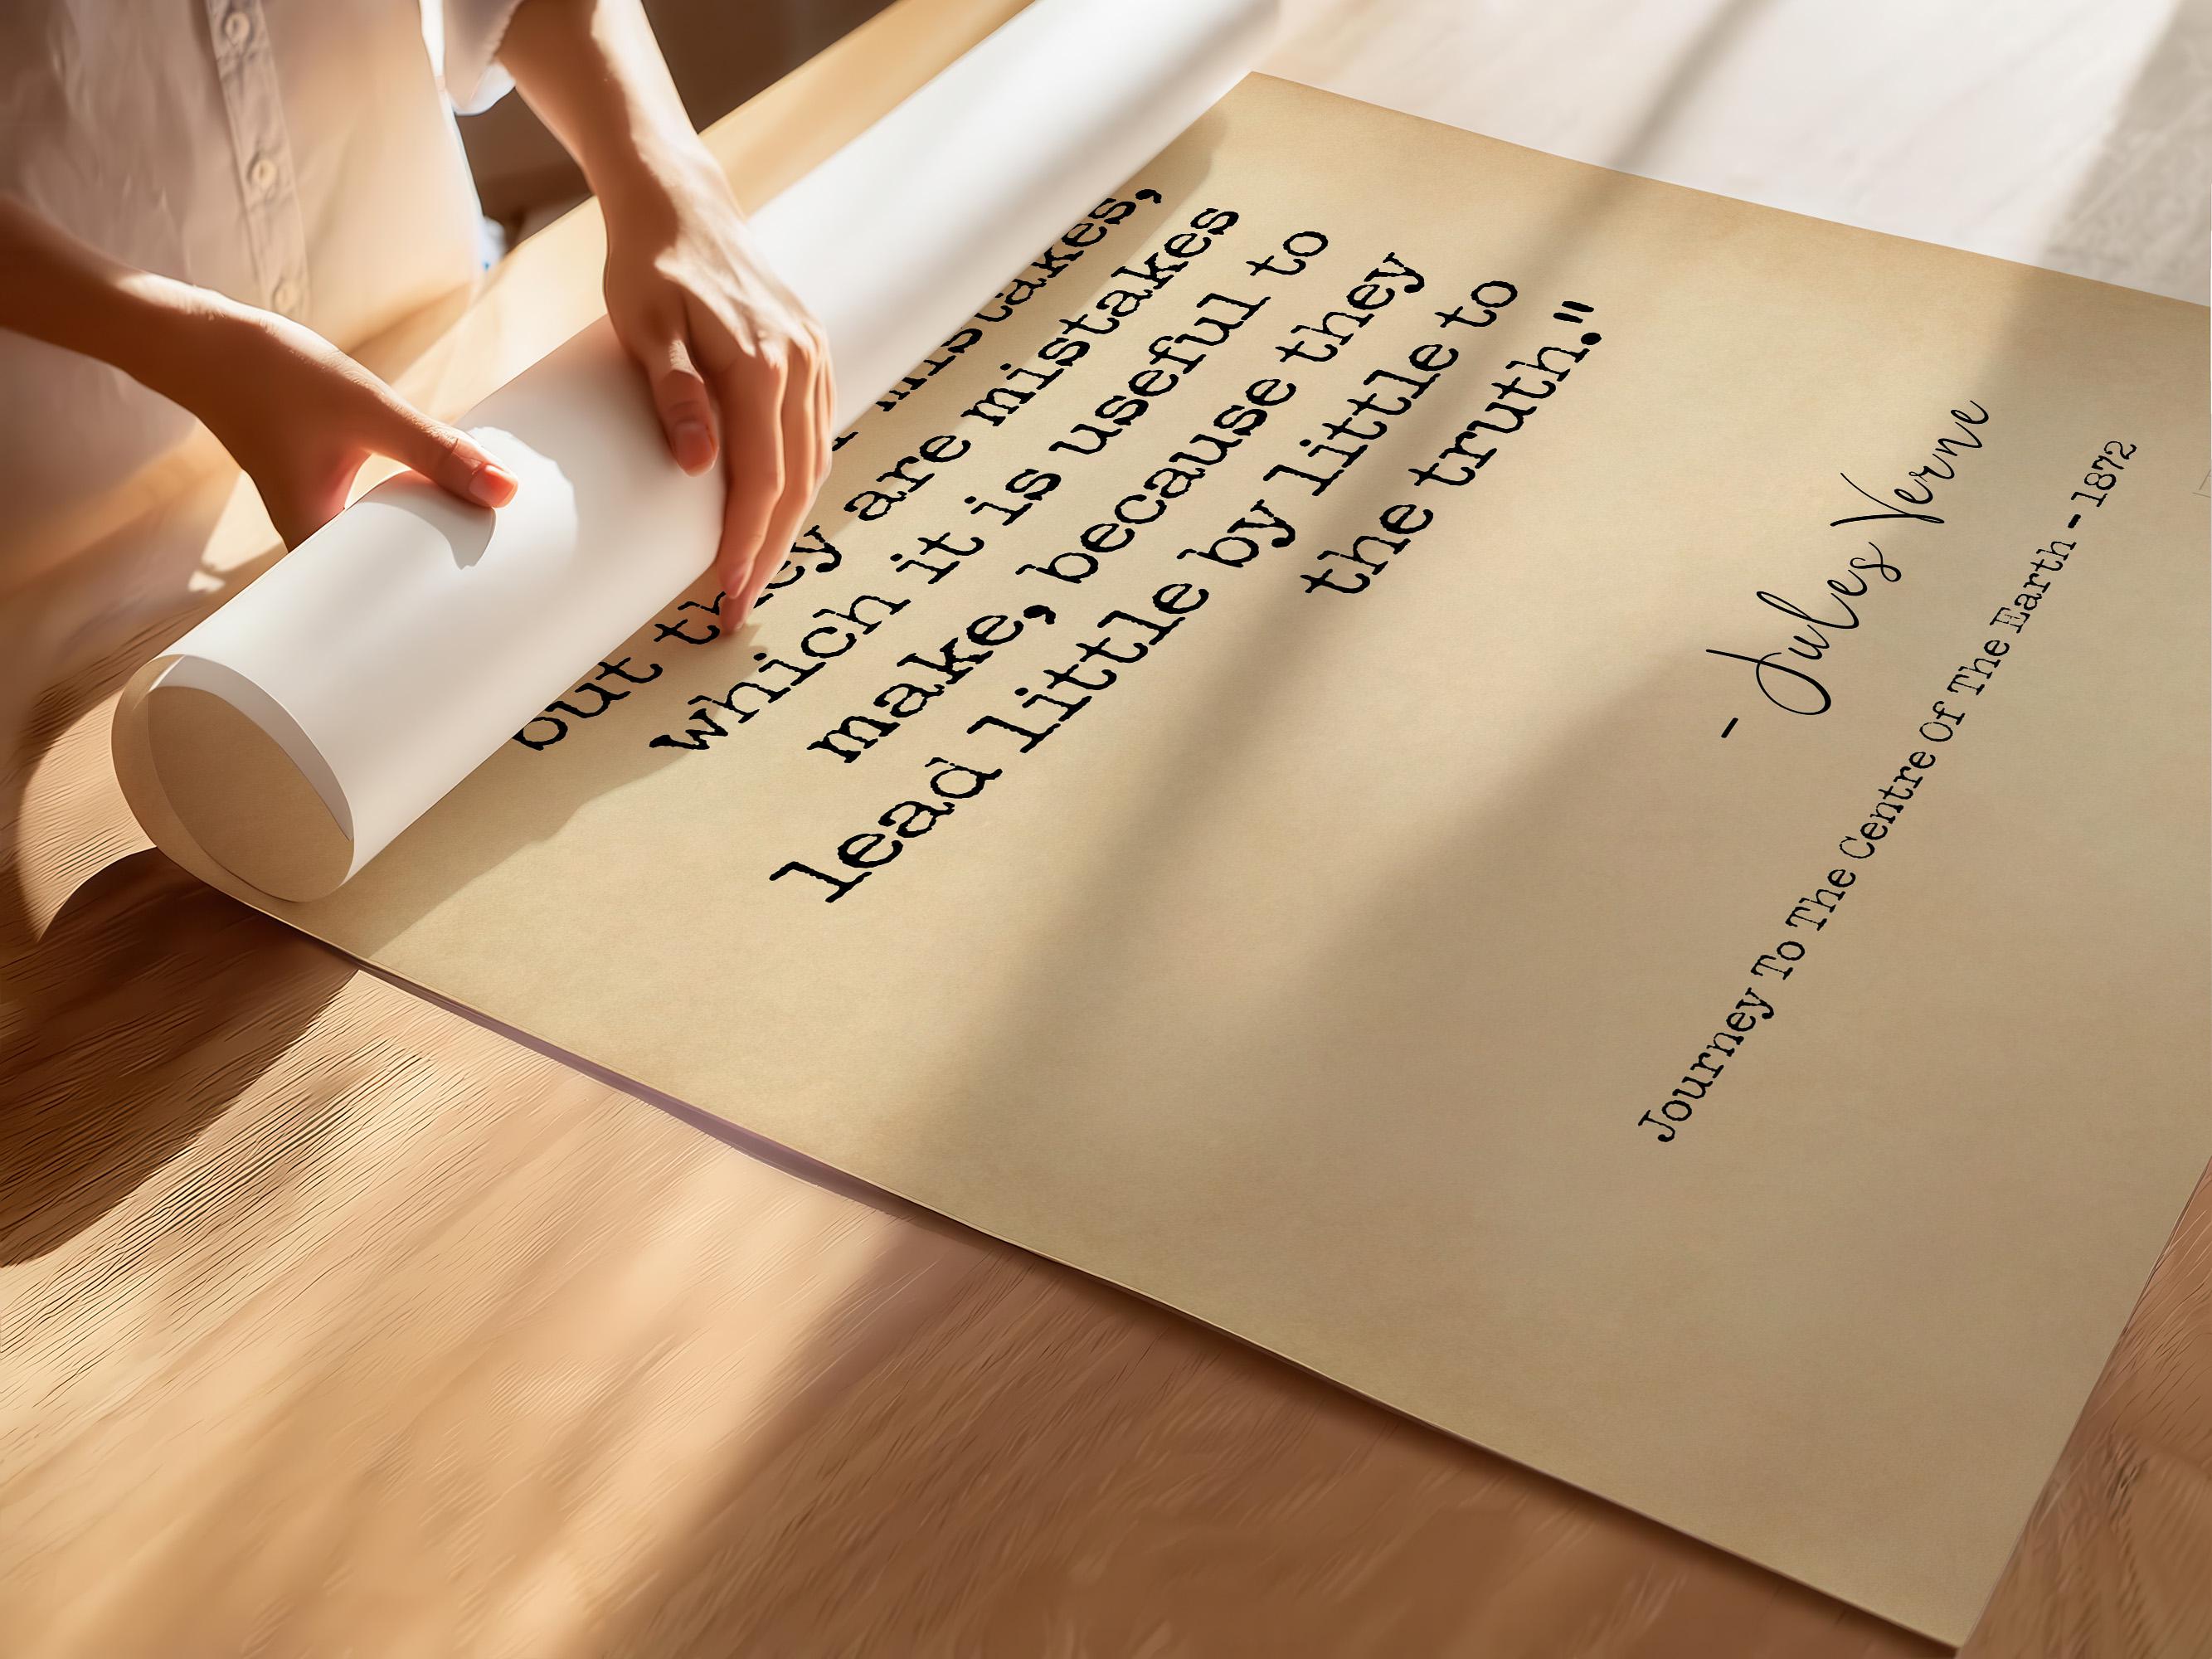 mistakes,
but they are mistakes
which it is useful to
make, because they
lead little by little to
the truth."
- Jules Verne
Journey To The Centre Of The Earth - 1872